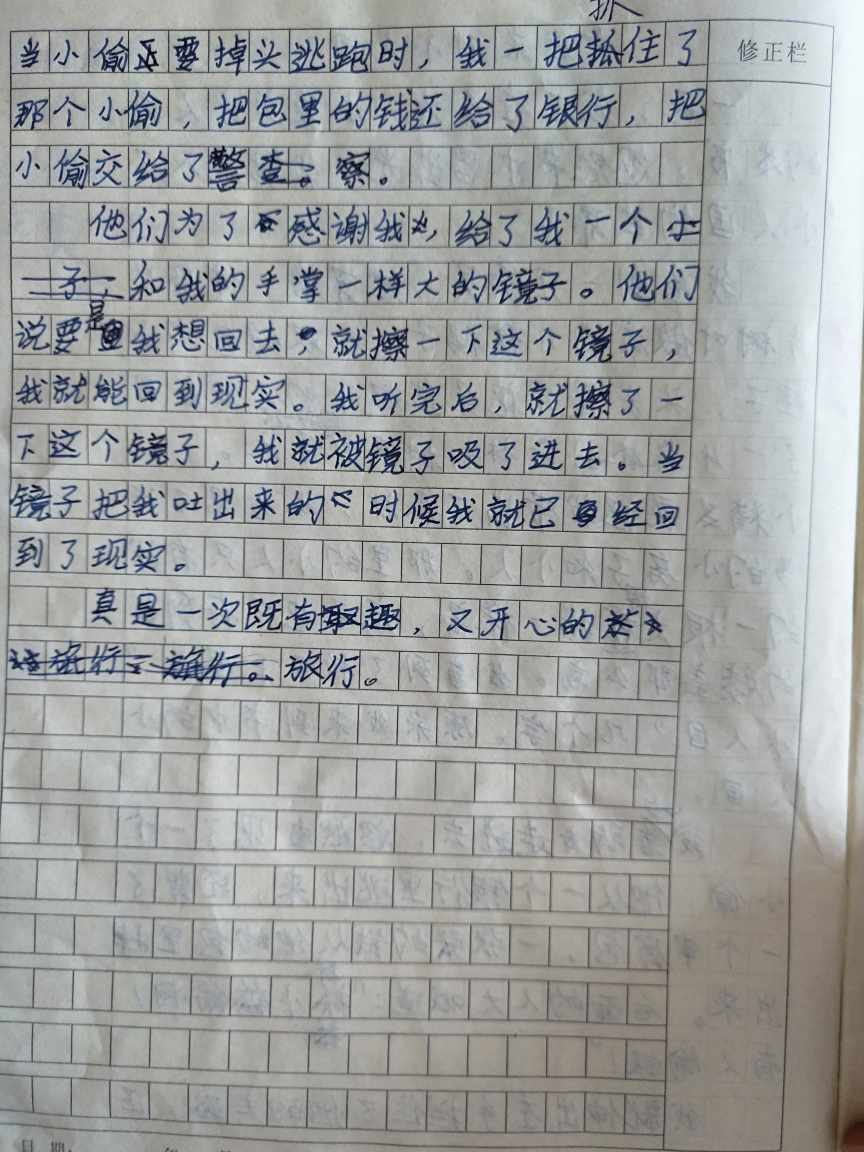 抓
当小偷正要掉头逃跑时，我一把抓住了
修正栏
那个小偷，把包里的钱还给了银行，把
小偷交给了警察。
他们为了感谢我，给了我一个
和我的手掌一样大的镜子。他们
说要是我想回去，就擦一下这个镜子，
我就能回到现实。我听完后，就擦了一
下这个镜子，我就被镜子吸了进去。当
镜子把我吐出来的时候我就已经回
到了现实。
真是一次既有趣，又开心的
旅行。